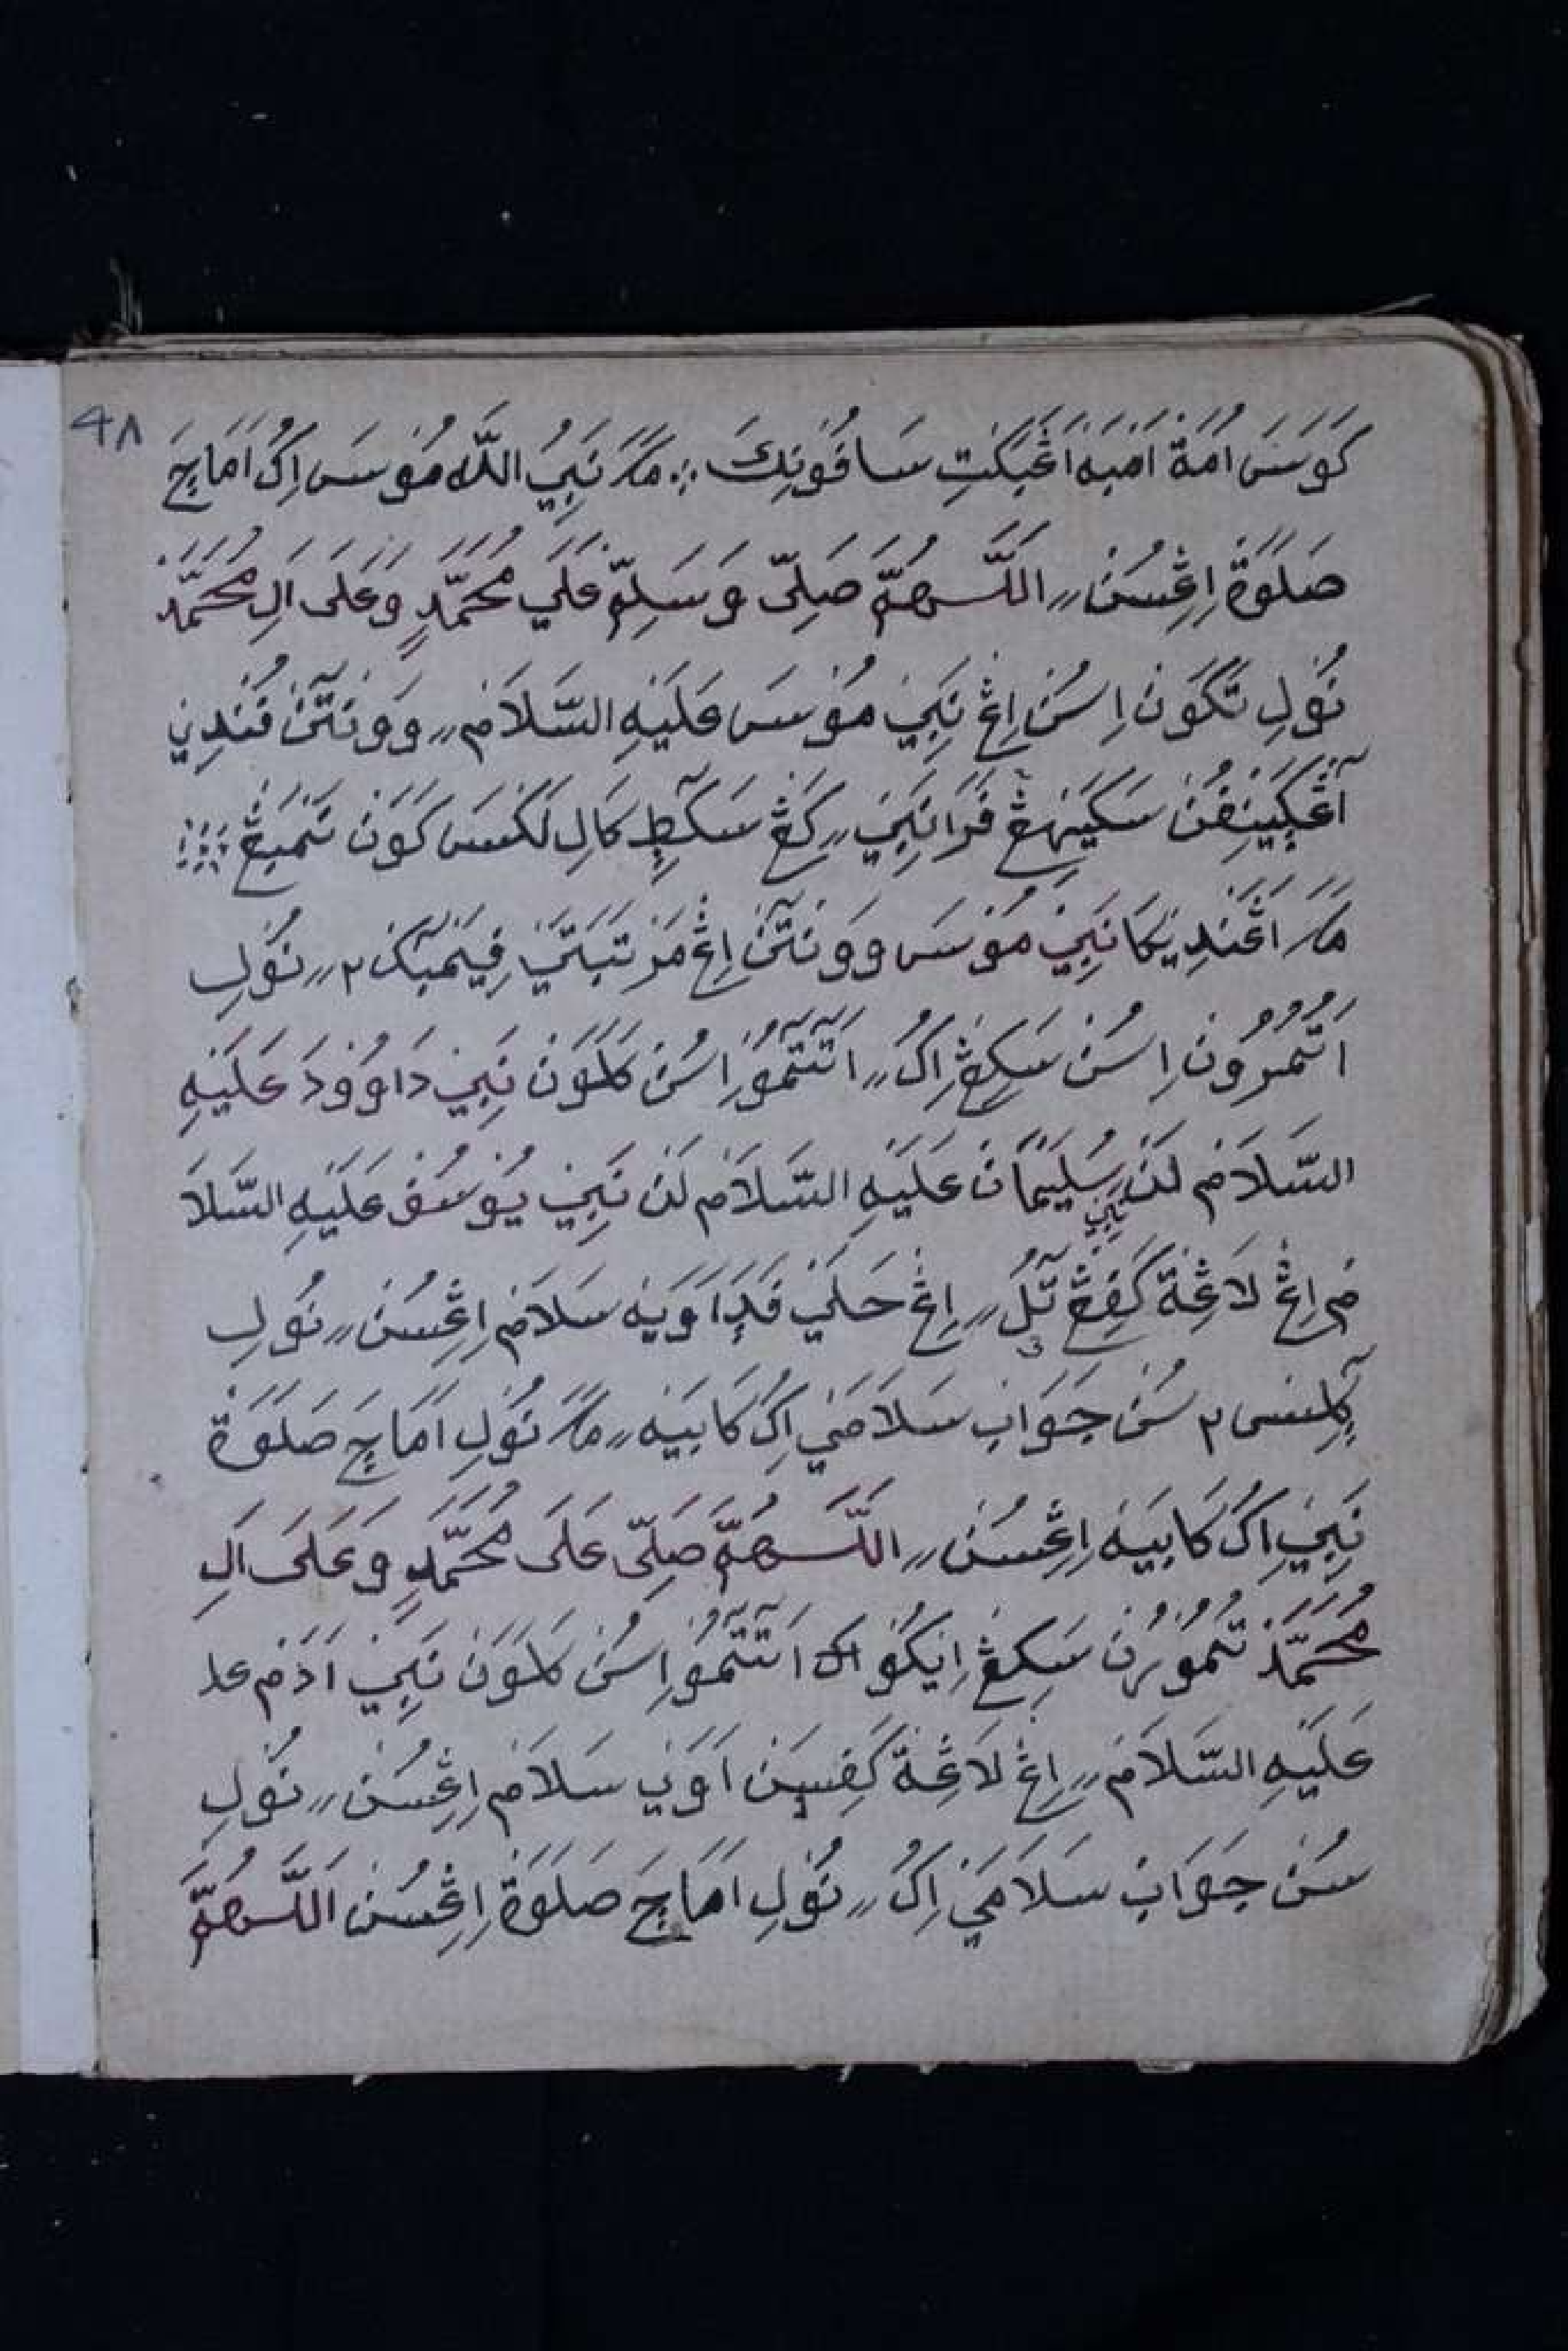 ٤٨
كَوَسَ اُمَةْ اَمْبَهْ اَڠْبَكْتِ سَافُونِكَ ؞ مَكَ نَبِيُ اللّٰه مُوْسَى اِكُ اَمَاچَ
صَلَوَةْ اِڠْسُنْ ؍؍ اللّٰهُمَّ صَلِّى وَسَلِّمْ عَلَي مُحَمَّدٍ وَعَلَى اَلِ مُحَمَّدْ
نُوْلِ تَكَوَنْ اِسُنْ اِڠْ نَبِيْ مُوْسَى عَلَيْهِ السَّلَامْ ؍؍ وَوَنْتَنْ فُنْدِيْ
اَڠْكَيْنِفُنْ سَكَيْهِڠْ فَرَا نَبِيْ ؍؍ كَڠْ سَكَطِ كَالِ لَكْسَ كَوَنْ نَمْبَڠْ
مَكَ اَڠَنْدِيْكَا نَبِيْ مُوْسَى وَوَنْتَنْ اِڠْ مَرْتَبَتَيْ فِيَمْبَكْ ٢ ؍؍ نُوْلِ
اَتُمُرُوْنْ اِسُنْ سَكِڠْ اِكُ ؍؍ اَتَتَمُوْ اِسُنْ كَلَوَنْ نَبِيْ دَاوُوْدَ عَلَيْهِ
السَّلَامْ لَنْ نَبِيْ سُلَيْمَانْ عَلَيْهِ السَّلَامْ لَنْ نَبِيْ يُوْسُفْ عَلَيْهِ السَّلَا
مْ اِڠْ لَاڠِةْ كَفِڠْ تَلُ ؍؍ اِڠْ حَلَيْ فَدَا اَوَيْهْ سَلَامْ اِڠْسُنْ ؍؍ نُوْلِ
سُنْ جَوَابْ سَلَامَيْ اِكُ كَابَيْهْ ؍؍ مَكَ نُوْلِ اَمَاچَ صَلَوَةْ
نَبِيْ اِكُ كَابَيْهْ اِڠْسُنْ ؍؍ اللّٰهُمَّ صَلِّى عَلَى مُحَمَّدٍ وَعَلَى اَلِ
مُحَمَّدْ تُمُوْرُنْ سَكِڠْ اِيْكُوْ اَتَتَمُوْ اِسُنْ كَلَوَنْ نَبِيْ اَدَمْ عل
عَلَيْهِ السَّلَامْ ؍؍ اِڠْ لَاڠِةْ كَفِسَنْ اَوَيْ سَلَامْ اِڠْسُنْ ؍؍ نُوْلِ
سُنْ جَوَابْ سَلَامَيْ اِكُ ؍؍ نُوْلِ اَمَاچَ صَلَوَةْ اِڠْسُنْ اَللّٰهُمَّ